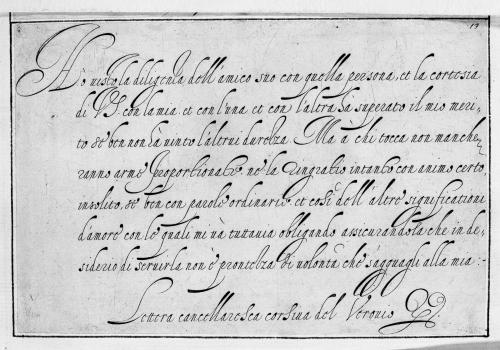 19
Hò uisto la diligenza dell'amico suo con quella persona, et la cortesia
di VS. con la mia, et con l'una et con l'altra hà superato il mio meri-
to se ben non hà uinto l'altrui durezza. Mà à chi tocca non manche-
ranno arme proportionate, ne la ringratio intanto con animo certo,
insolito, se ben con parole ordinarie, et così dell'altre significationi
d'amore con le quali mi uà tuttauia obligando assicurandola che in de-
siderio di seruirla non è prontezza di uolontà che s'agguagli alla mia:
Lettera cancellaresca corsiua del Verouio